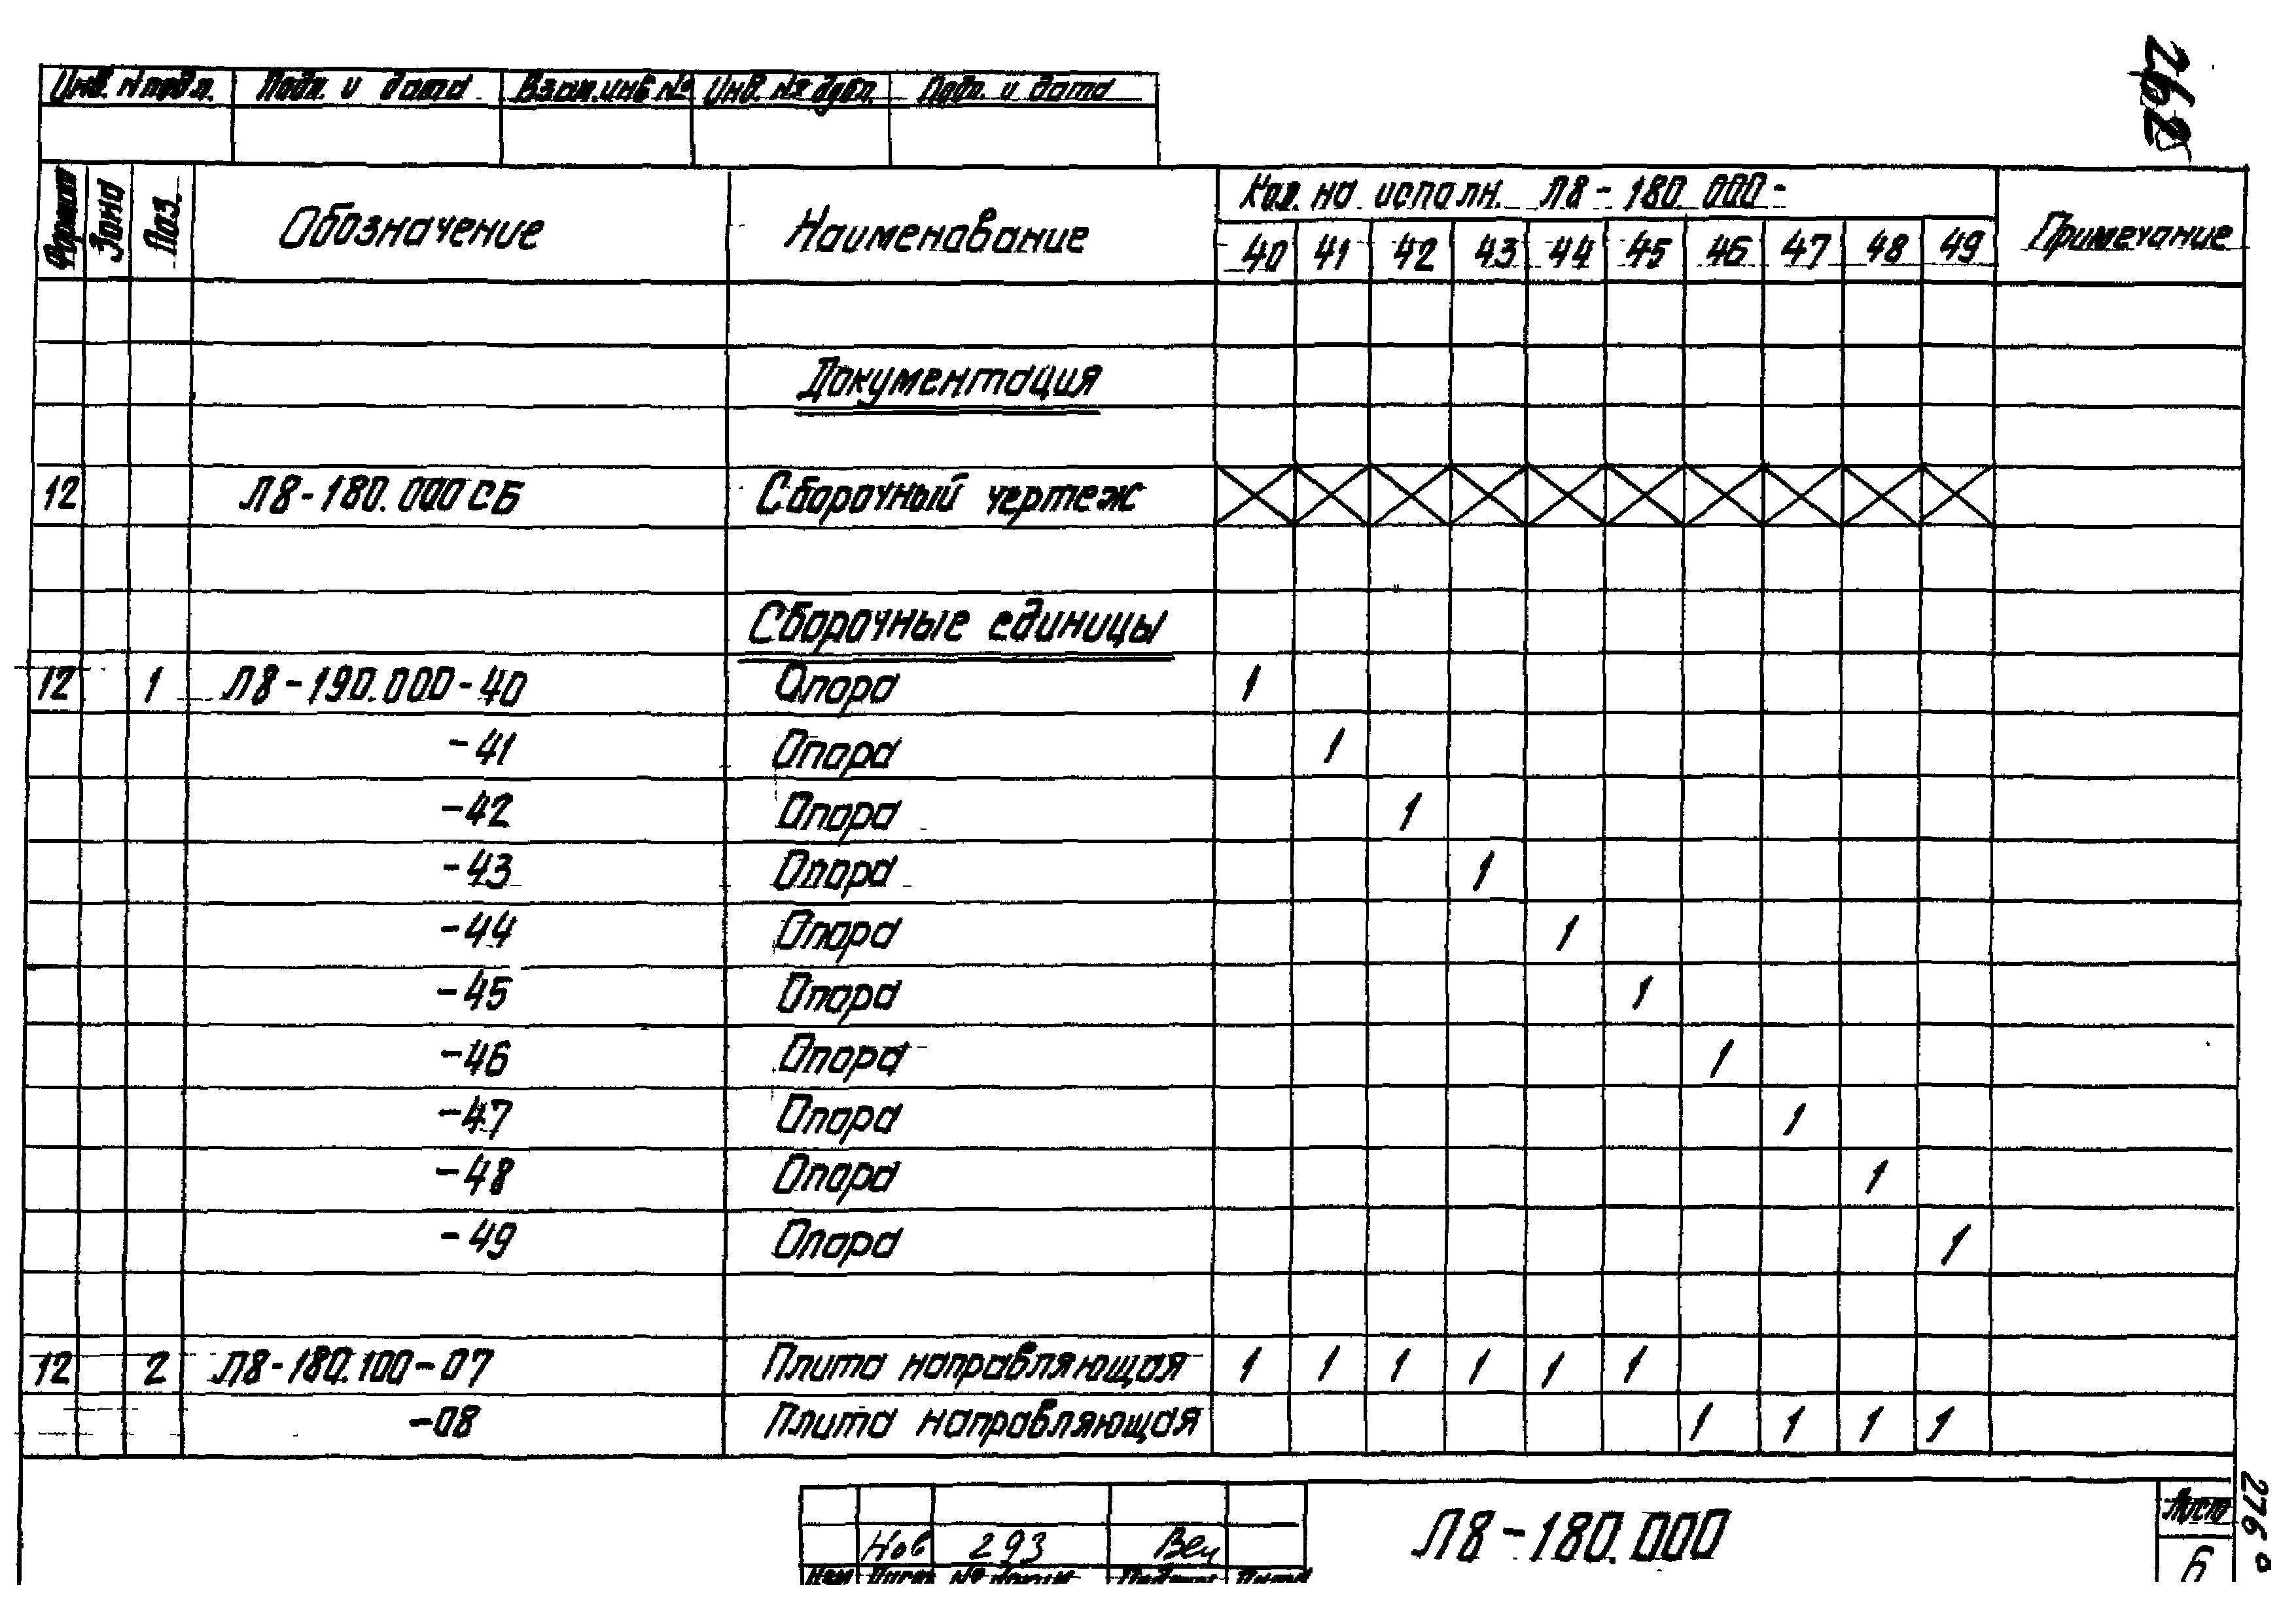 262
Инв. N подл. Подп. и дата Взам. инв № Инв. № дубл. Подп. и дата
Формат Зона Поз. Обозначение Наименование Кол. на исполн. Л8-180.000- Примечание
40 41 42 43 44 45 46 47 48 49
Документация
12 Л8-180.000 СБ Сборочный чертеж
Сборочные единицы
12 1 Л8-190.000-40 Опора 1
-41 Опора 1
-42 Опора 1
-43 Опора 1
-44 Опора 1
-45 Опора 1
-46 Опора 1
-47 Опора 1
-48 Опора 1
-49 Опора 1
12 2 Л8-180.100-07 Плита направляющая 1 1 1 1 1 1
-08 Плита направляющая 1 1 1 1
Нов 293
Л8-180.000
Лист
6
276